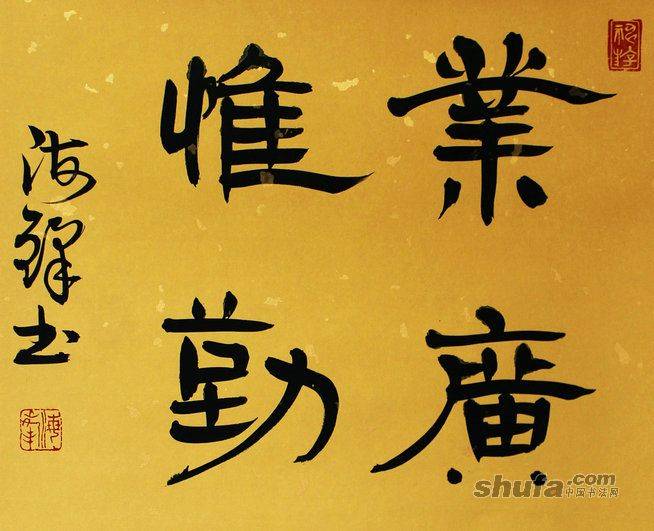 業廣
惟勤
海鋒书
shufa.com
中国书法网